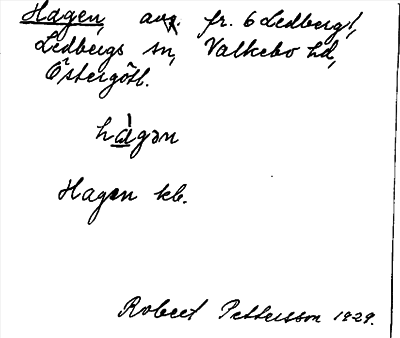 Hagen, avs. fr. 6 Ledberg!,
Ledbergs sn, Valkebo hd,
Östergötl.
hàgən
Hagen kb.
Robert Pettersson 1929.